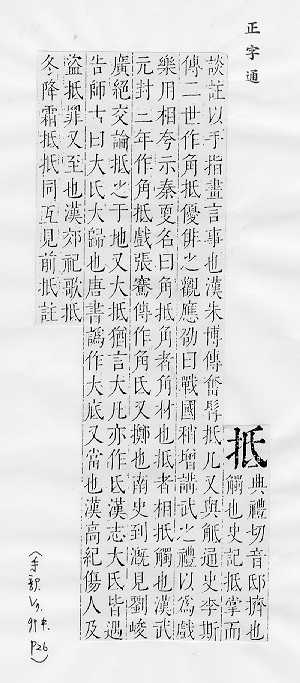 正字通
抵
典禮切音邸擠也
觸也史記抵掌而
談註以手指畫言事也漢朱博傳奮髯抵几又與觝通史李斯
傳二世作角抵優俳之觀應劭曰戰國稍增講武之禮以為戲
樂用相夸示秦更名曰角抵角者角材也抵者相抵觸也漢武
元封二年作角抵戲張騫傳作角氐又擲也南史到溉見劉峻
廣絕交論抵之于地又大抵猶言大凡亦作氐漢志大氐皆遇
告師古曰大氏大歸也唐書譌作大底又當也漢高紀傷人及
盜抵罪又至也漢郊祀歌抵
冬降霜抵抵同互見前抵註
P26)